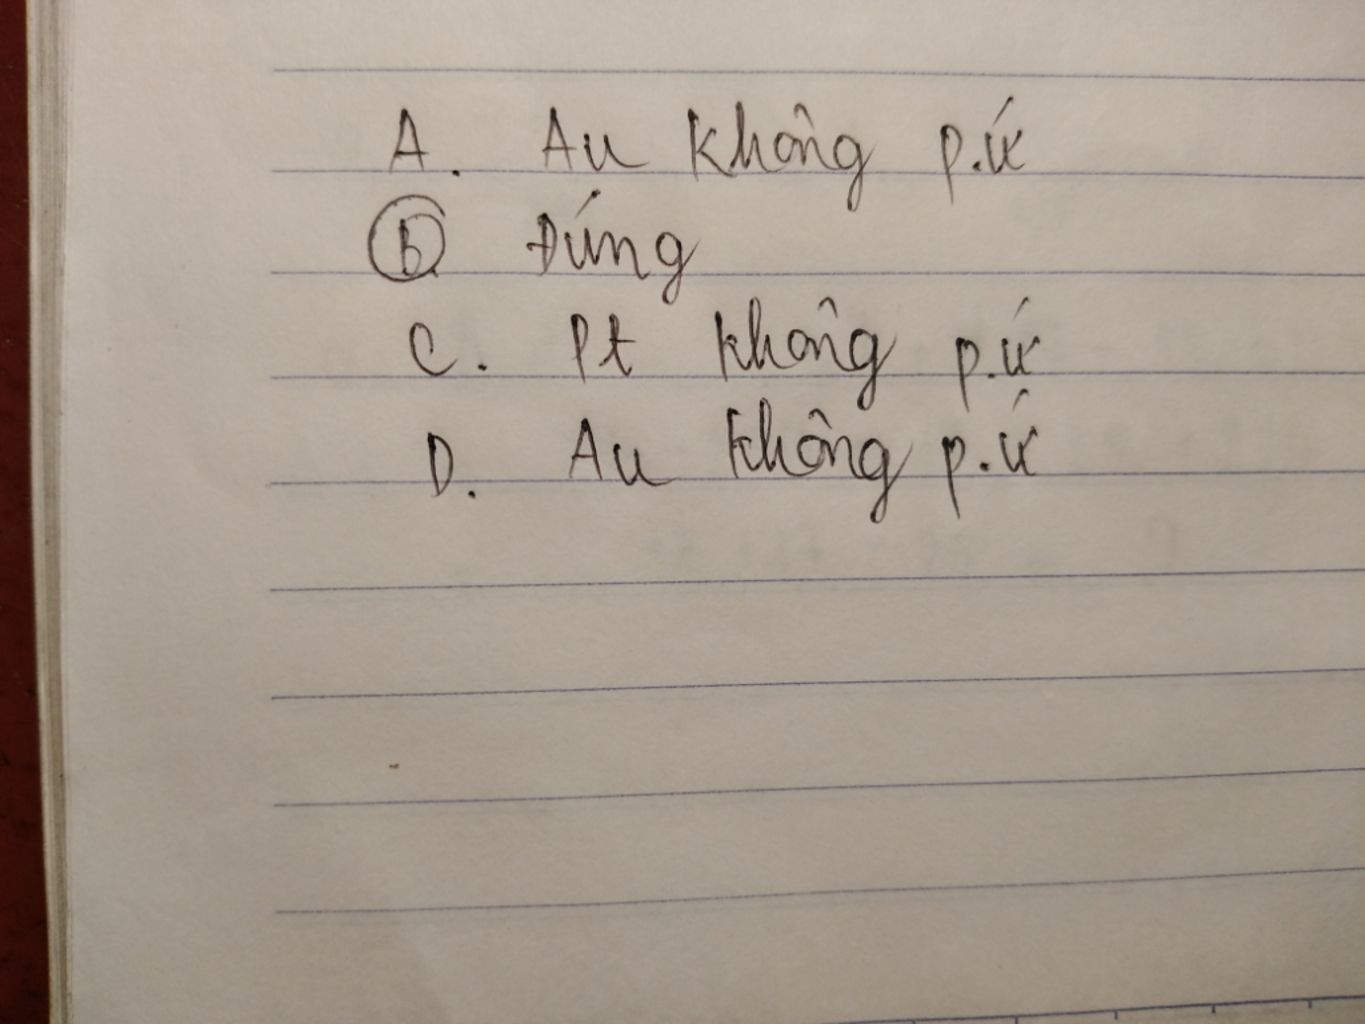 A. Au không p.ứ
B. Đúng
C. Pt không p.ứ
D. Au không p.ứ